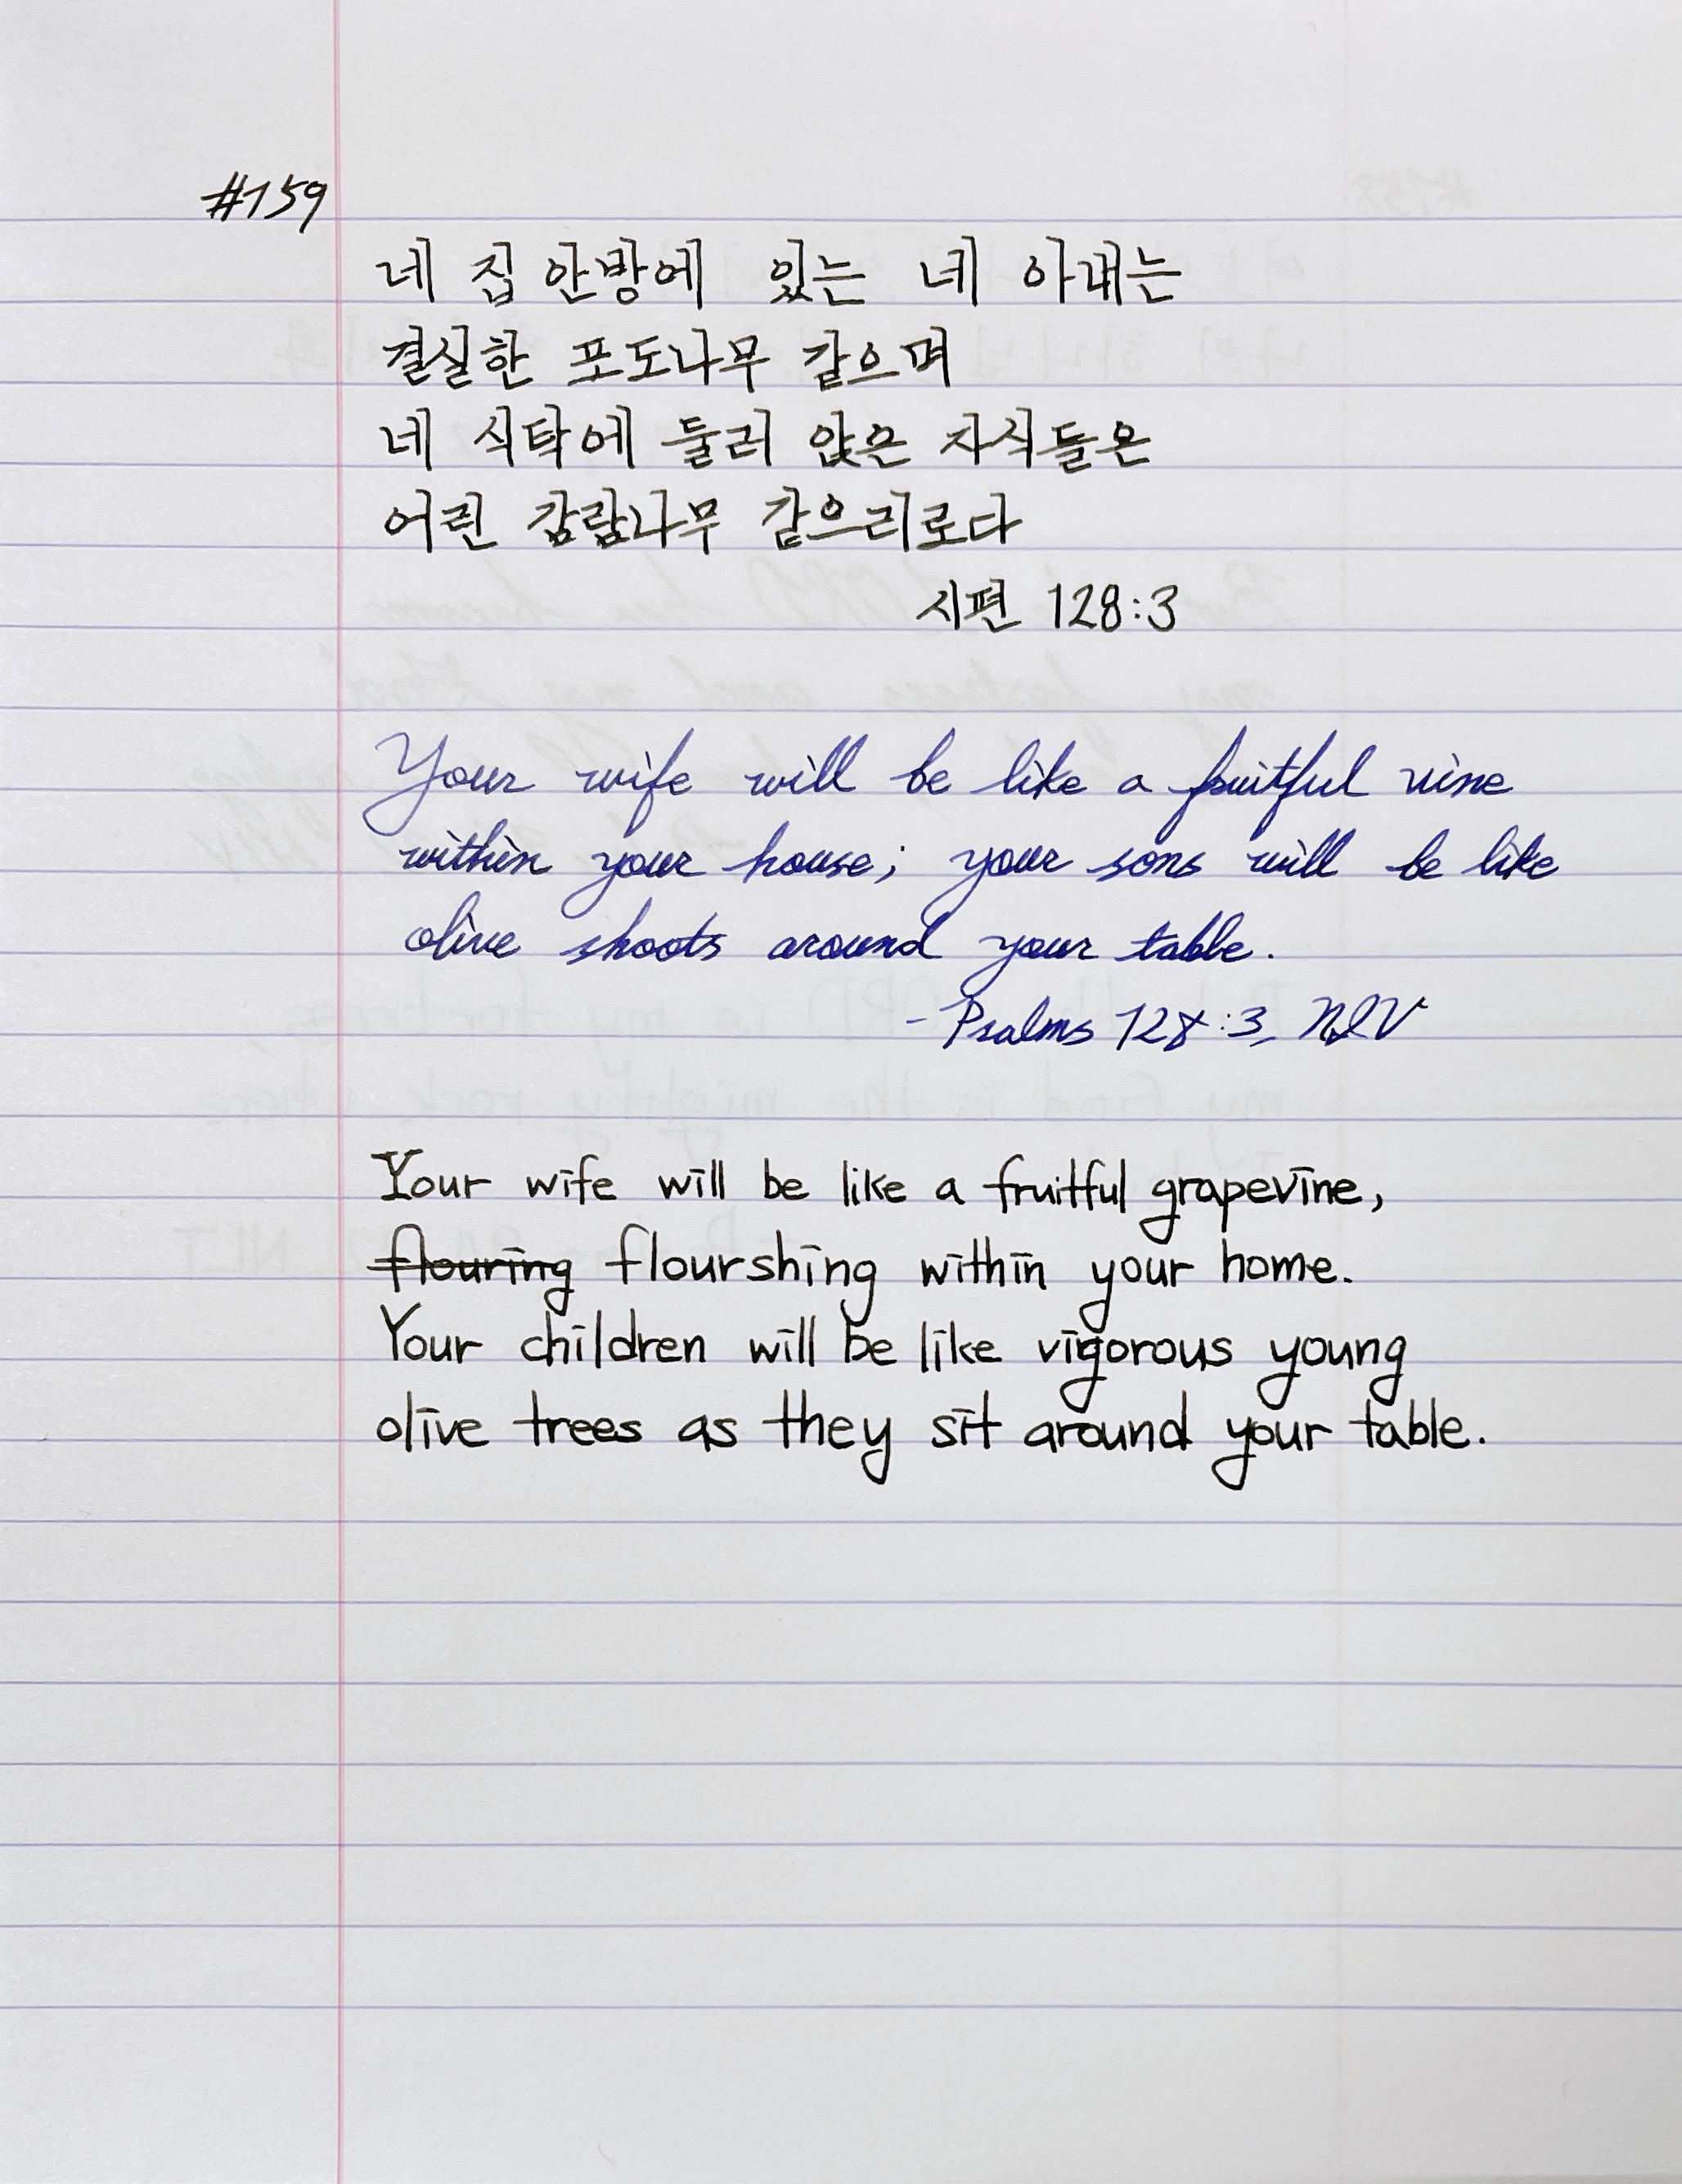 #159
네 집 안방에 있는 네 아내는
결실한 포도나무 같으며
네 식탁에 둘러 앉은 자식들은
어린 감람나무 같으리로다
시편 128:3
Your wife will be like a fruitful vine
within your house; your sons will be like
olive shoots around your table.
- Psalms 128:3, NIV
Your wife will be like a fruitful grapevine,
flouring flourshing within your home.
Your children will be like vigorous young
olive trees as they sit around your table.